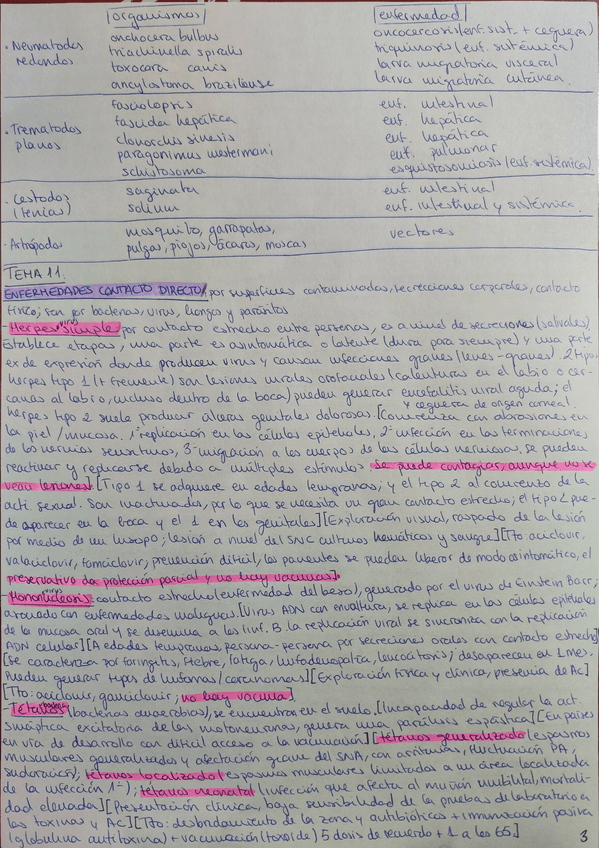 organismos enfermedad
· Nematodos redondos
onchocera bulbus oncocercosis (enf. sist. + ceguera)
triachinella spiralis triquinosis (enf. sistémica)
toxocara canis larva migratoria visceral
ancylostoma braziliense larva migratoria cutánea
· Trematodos planos
fasciolopsis enf. intestinal
fasciola hepática enf. hepática
clonorchis sinesis enf. hepática
paragonimus westermani enf. pulmonar
schistosoma esquistosomiosis (enf. sistémica)
· Cestodos (tenias)
saginata enf. intestinal
solium enf. intestinal y sistémica
· Artrópodos
mosquito, garrapatas, vectores
pulgas, piojos, ácaros, moscas
TEMA 11.
ENFERMEDADES CONTACTO DIRECTO, por superficies contaminadas, secrecciones corporales, contacto
físico; son por bacterias, virus, hongos y parásitos
- Herpes virus simple por contacto estrecho entre personas, es a nivel de secreciones (salivales).
Establece etapas, una parte es asintomática o latente (dura para siempre) y una parte
ex de expresión donde producen virus y causan infecciones graves (leves-graves). 2 tipo,
herpes tipo 1 (+ frecuente) son lesiones orales orofaciales (calenturas en el labio o cer-
canas al labio, incluso dentro de la boca) pueden generar encefalitis viral aguda; el
y ceguera de origen corneal.
herpes tipo 2 suele producir úlceras genitales dolorosas. [Comienza con abrasiones en
la piel/mucosa. 1º replicación en las células epiteliales, 2º infección en las terminaciones
de los nervios sensitivos, 3º migración a los cuerpos de las células nerviosas, se pueden
reactivar y replicarse debido a múltiples estímulos se puede contagiar, aunque no se
vean lesiones] [Tipo 1 se adquiere en edades tempranas, y el tipo 2 al comienzo de la
acti. sexual. Son inactivados, por lo que se necesita un gran contacto estrecho; el tipo 2 pue-
de aparecer en la boca y el 1 en los genitales] [Exploración visual, raspado de la lesión
por medio de un hisopo; lesión a nivel del SNC cultivos hemáticos y sangre] [Tto: aciclovir,
valaciclovir, famciclovir, prevención difícil, los pacientes se pueden liberar de modo asintomático, el
preservativo da protección parcial y no hay vacunas].
- Mononucleosis virus contacto estrecho (enfermedad del beso), generado por el virus de Einstein Barr,
asociado con enfermedades malignas. [Virus ADN con envoltura, se replica en las células epiteliales
de la mucosa oral y se disemina a los linf. B. la replicación viral se sincroniza con la replicación
ADN celular] [A edades tempranas, persona-persona por secreciones orales con contacto estrecho]
[se caracteriza por faringitis, fiebre, fatiga, linfadenopatía, leucocitosis; desaparecen en 1 mes.
Pueden generar tipos de linfomas/carcinomas] [Exploración física y clínica, presencia de Ac]
[Tto: aciclovir, ganciclovir; no hay vacuna].
- Tétanos bacteria (bacterias anaerobias), se encuentran en el suelo. [Incapacidad de regular la act.
sináptica excitatoria de las motoneuronas, genera una parálisis espástica] [En países
en vía de desarrollo con difícil acceso a la vacunación] [tétanos generalizado (espasmos
musculares generalizados y afectación grave del SNA, con arritmias, fluctuación PA,
sudoración); tétanos localizado (espasmos musculares limitados a un área localizada
de la infección 1ª); tétanos neonatal (infección que afecta al muñón umbilical, mortali-
dad elevada] [Presentación clínica, baja sensibilidad de la pruebas de laboratorio a
las toxinas y AC] [Tto: desbridamiento de la zona y antibióticos + inmunización pasiva
(globulina antitoxina) + vacunación (toxoide) 5 dosis de recuerdo + 1 a los 65]
3